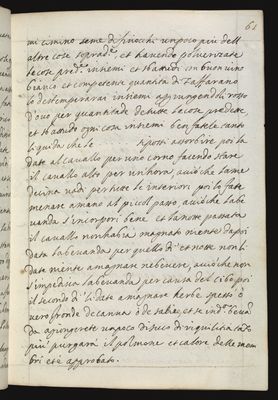 61
mi cimino seme di finochi un poco più dell'
altre cose sopradte. et havendo poluerizate
le cose predte. insiemi et sbattudi in buon vino
bianco et competenti quantità di Zaffarano
lo destemperarai insiemi aggiongendoli rosso
d'ouo per quantitade de tutte le cose predette,
et sbattudo ogni cosa insiemi ben fatele tanto
liquida che se possi assorbire poi la
date al cauallo per uno corno facendo stare
il cauallo alto per un hora, acciò che la me
decina vadi per tutte le interiori poi lo fate
menare a mano al piccol passo, acciò che la be
uanda s'incorpori bene et la notte passata
il cauallo non habia magnato niente da poi
date la beuanda per quello dì et notte non li
date niente a magnare ne beuere, acciò che non
s'impedisca la beuanda per causa del cibo poi
il secondo dì li date a magnare herbe spesso ò
uero fronde de canna ò de salce, et se in detta beuanda
da agiongerete un poco di suco di riquilitia tanto
più purgarà il polmone et calore delle mem
bri et è approbato.